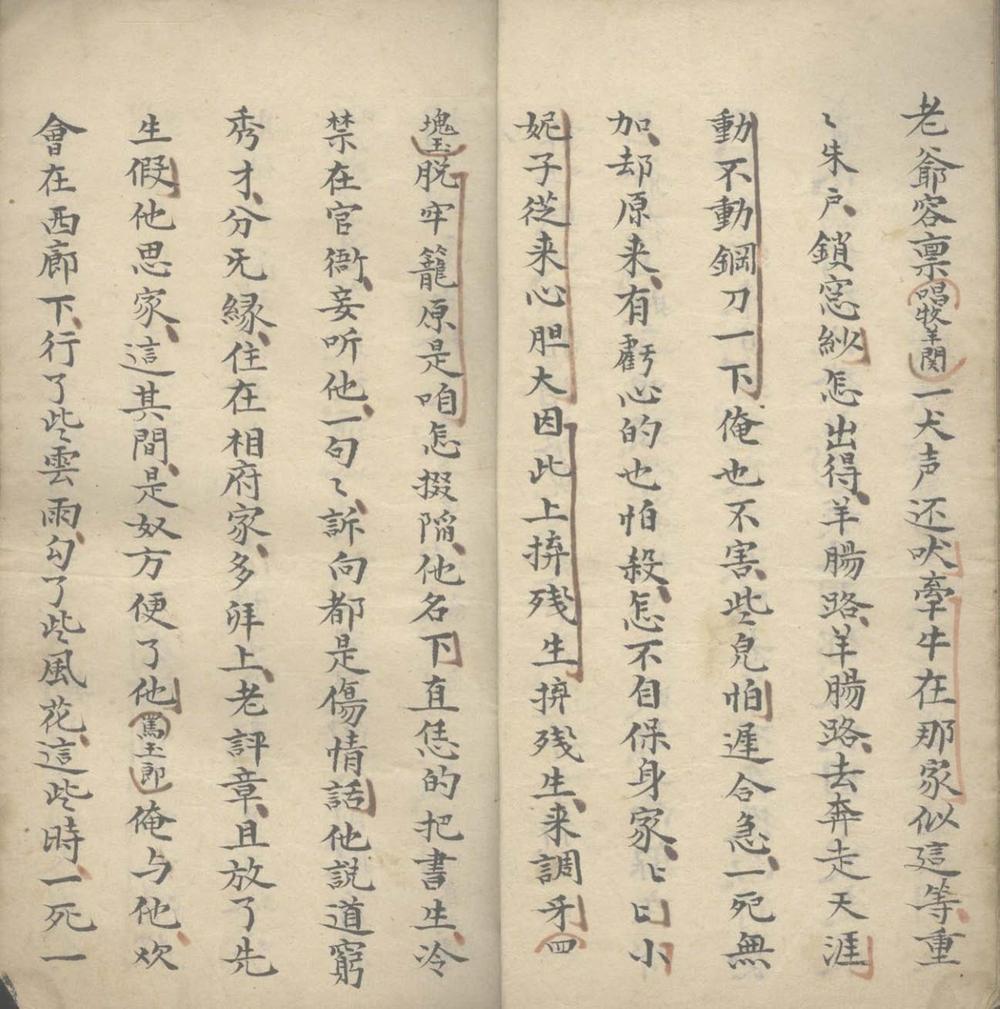 老爺容禀唱牧羊関一犬声还吠牽牛在那家似這等重
〻朱戶鎖窓紗怎出得羊腸路羊腸路去奔走天涯
動不動鋼刀一下俺也不害些兒怕遲合急一死無
加却原来有虧心的也怕殺怎不自保身家〻白小
妮子従来心胆大因此上拚残生拚残生来調牙四
塊玉脱牢籠原是咱怎掇陷他名下直恁的把書生冷
禁在官衙妾听他一句〻訴向都是傷情話他說道窮
秀才分无緣住在相府家多拜上老評章且放了先
生假他思家這其間是奴方便了他罵玉郎俺与他欢
會在西廊下行了些雲雨勾了些風花這些時一死一